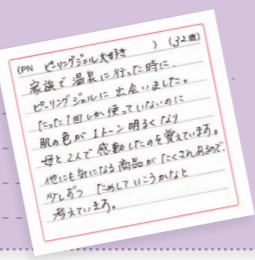 (PN ピーリングジェル大好き ) (32歳)
家族で温泉に行った時に、
ピーリングジェルに出会いました。
たった1回しか使っていないのに
肌の色が1トーン明るくなり
母と2人で感動したのを覚えています。
他にも気になる商品がたくさんあるので、
少しずつ ためしていこうかなと
考えています。